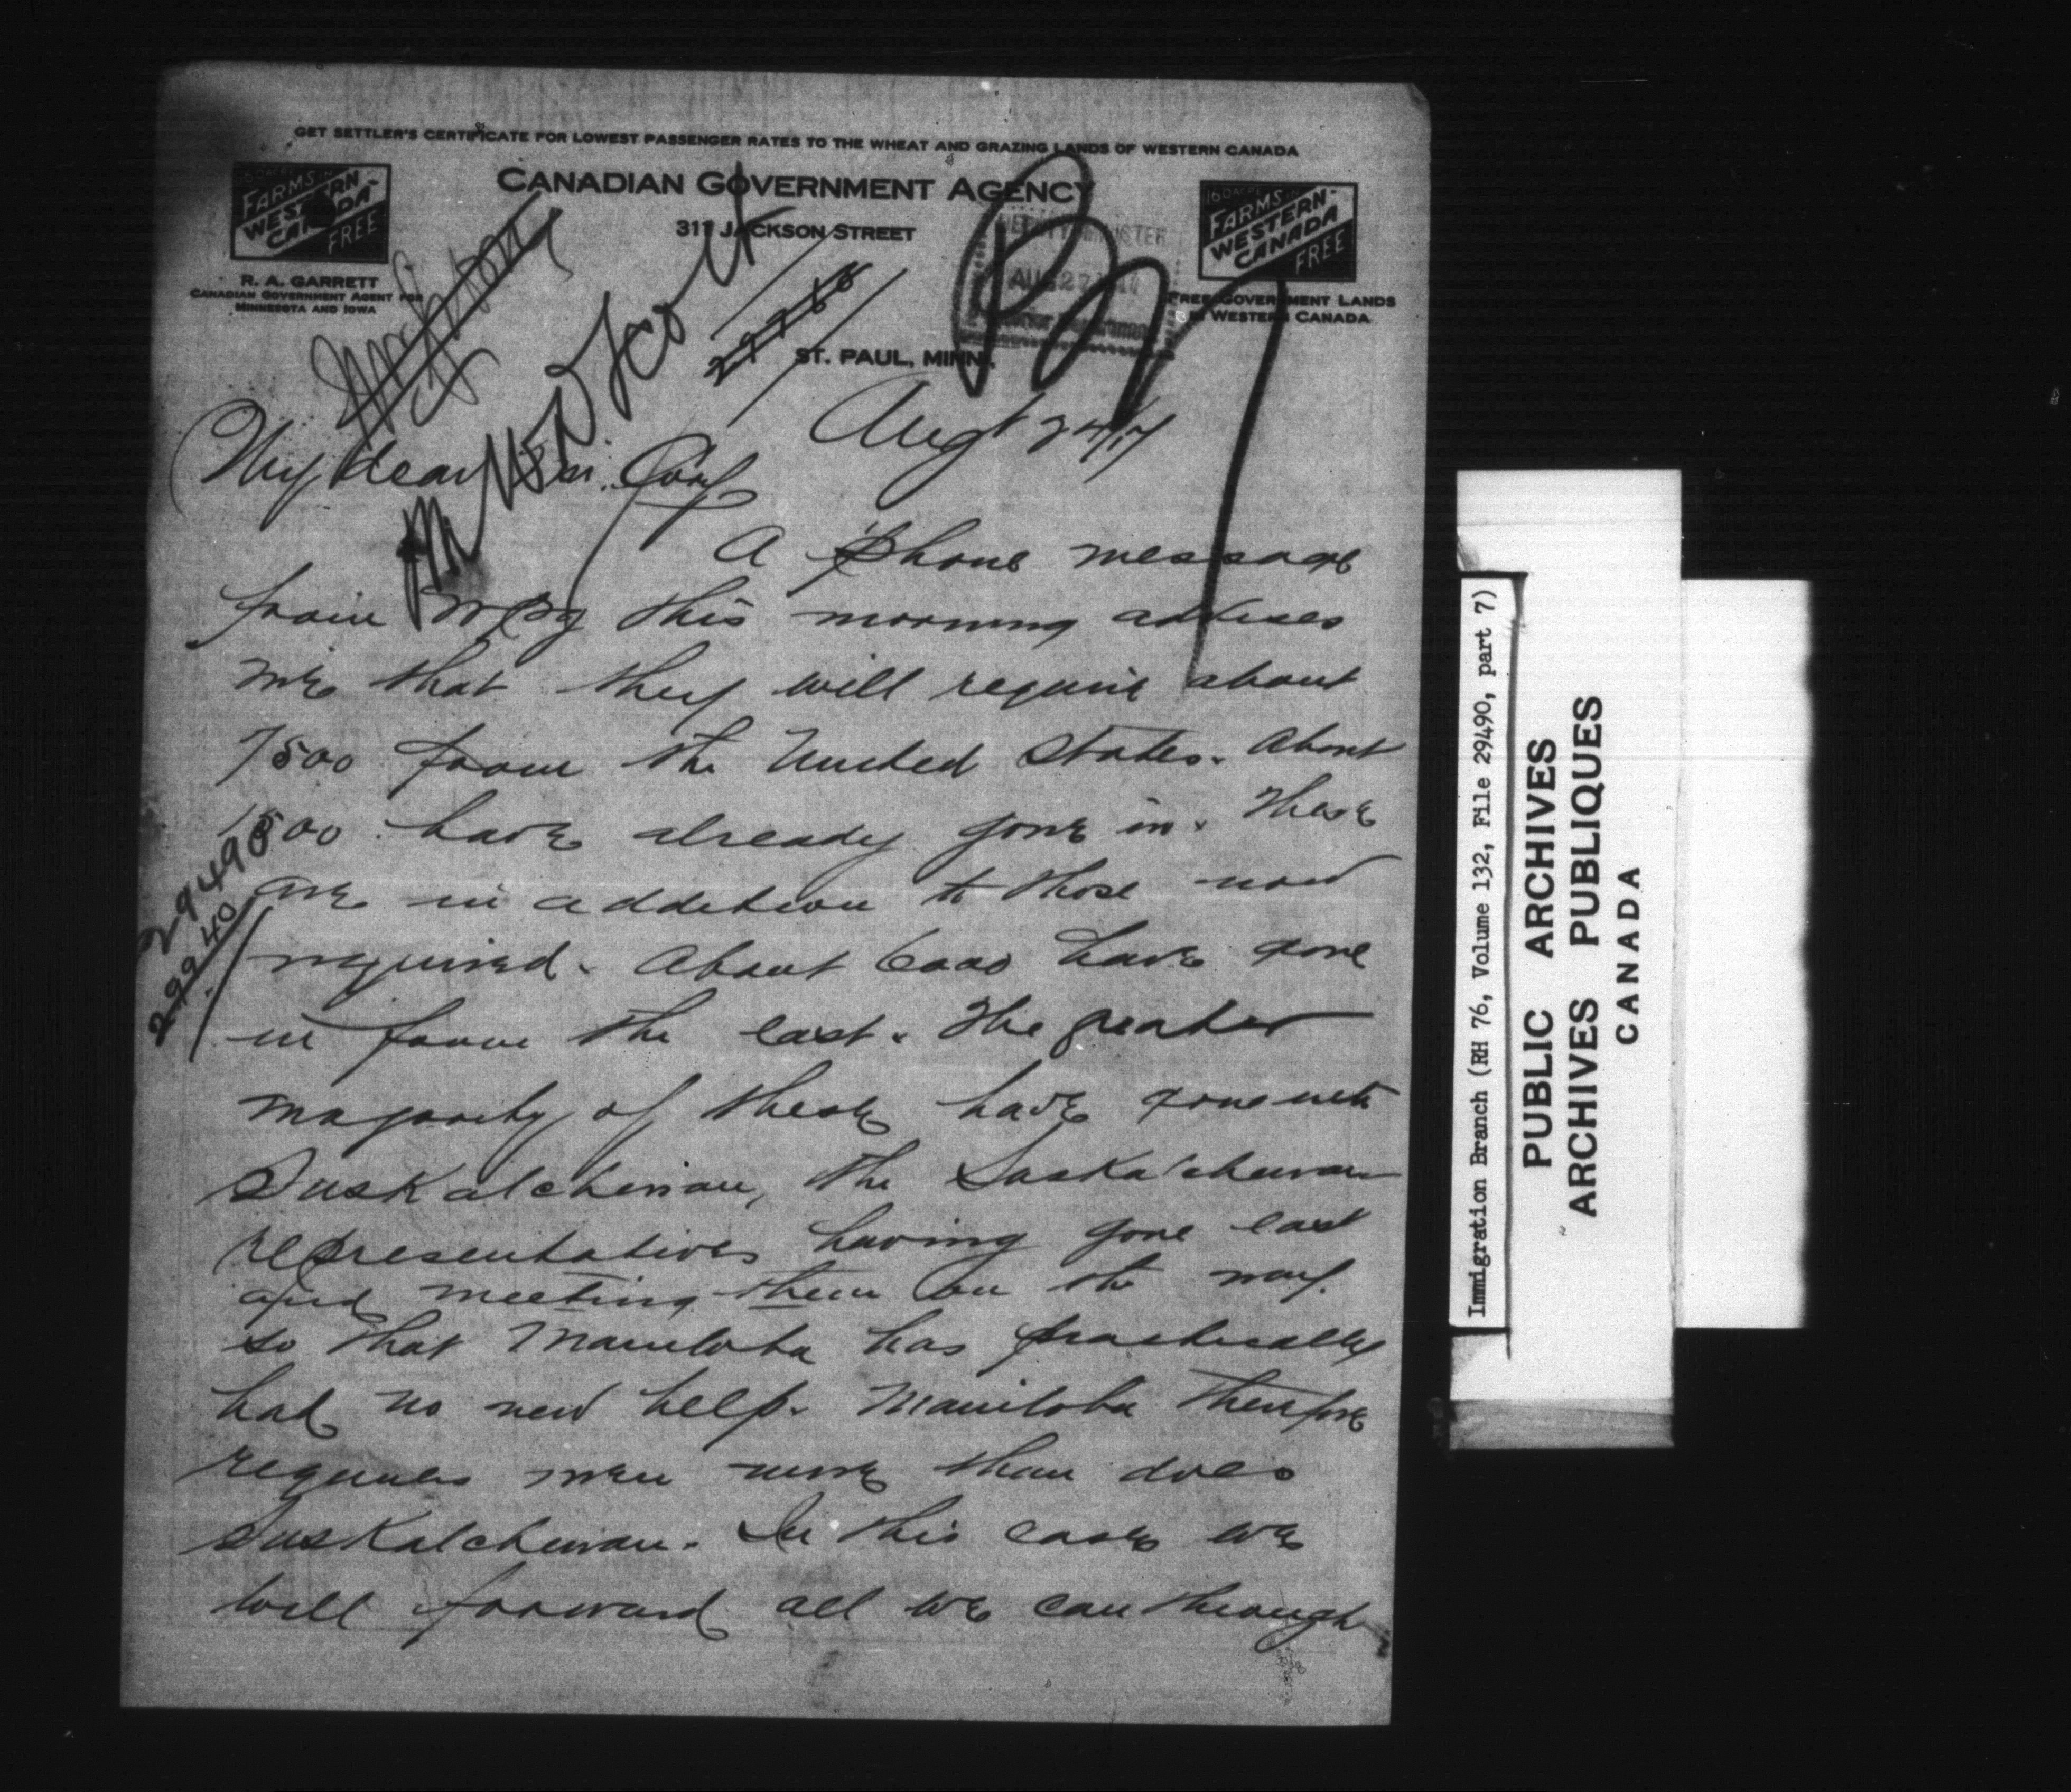 GET SETTLER'S CERTIFICATE FOR LOWEST PASSENGER RATES TO THE WHEAT AND GRAZING LANDS OF WESTERN CANADA
160 ACRE
FARMS IN
WESTERN
CANADA
FREE
CANADIAN GOVERNMENT AGENCY
311 JACKSON STREET
160 ACRE
FARMS IN
WESTERN
CANADA
FREE
R. A. GARRETT
CANADIAN GOVERNMENT AGENT FOR
MINNESOTA AND IOWA
DEPUTY MINISTER
AUG 27
FREE GOVERNMENT LANDS
IN WESTERN CANADA
ST. PAUL, MINN.
Mr W D Scott
Augt 24/17
My dear Mr. Cory
A phone message
from Wpg this morning advises
me that they will require about
7500 from the United States. About
1500 have already gone in. These
are in addition to those now
required. About 6000 have gone
in from the east. The greater
majority of these have gone into
Saskatchewan, the Saskatchewan
representatives having gone east
and meeting them on the way.
so that Manitoba has practically
had no new help. Manitoba therefore
requires men more than does
Saskatchewan. In this case we
will forward all we can through
29490
29940
Immigration Branch (RH 76, Volume 132, File 29490, part 7)
PUBLIC ARCHIVES
ARCHIVES PUBLIQUES
CANADA